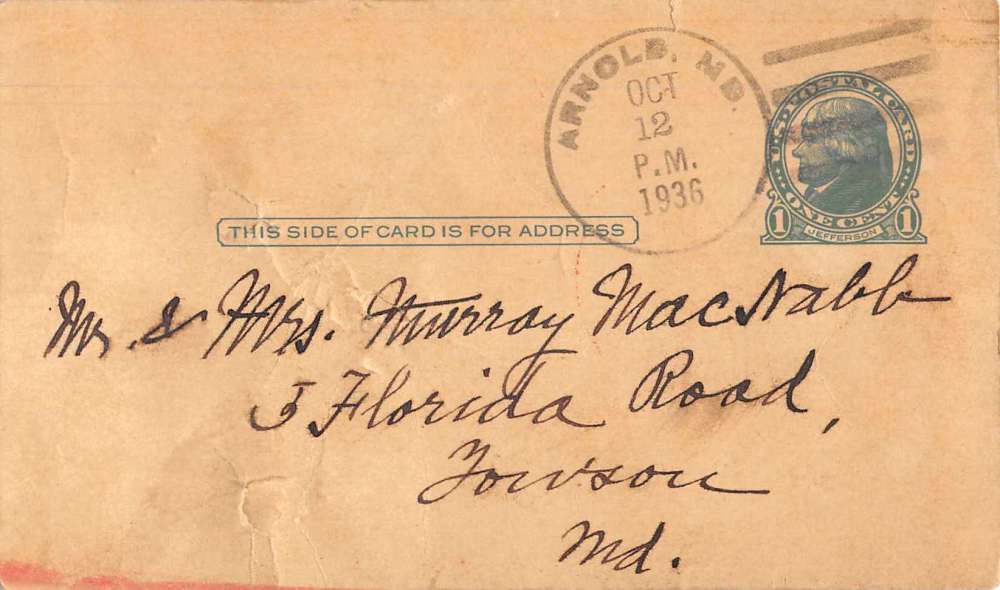 ARNOLD, MD.
OCT
12
P.M.
1936
U.S. POSTAL CARD
ONE CENT
1 JEFFERSON 1
THIS SIDE OF CARD IS FOR ADDRESS
Mr. & Mrs. Murray MacNabb
5 Florida Road,
Towson
Md.